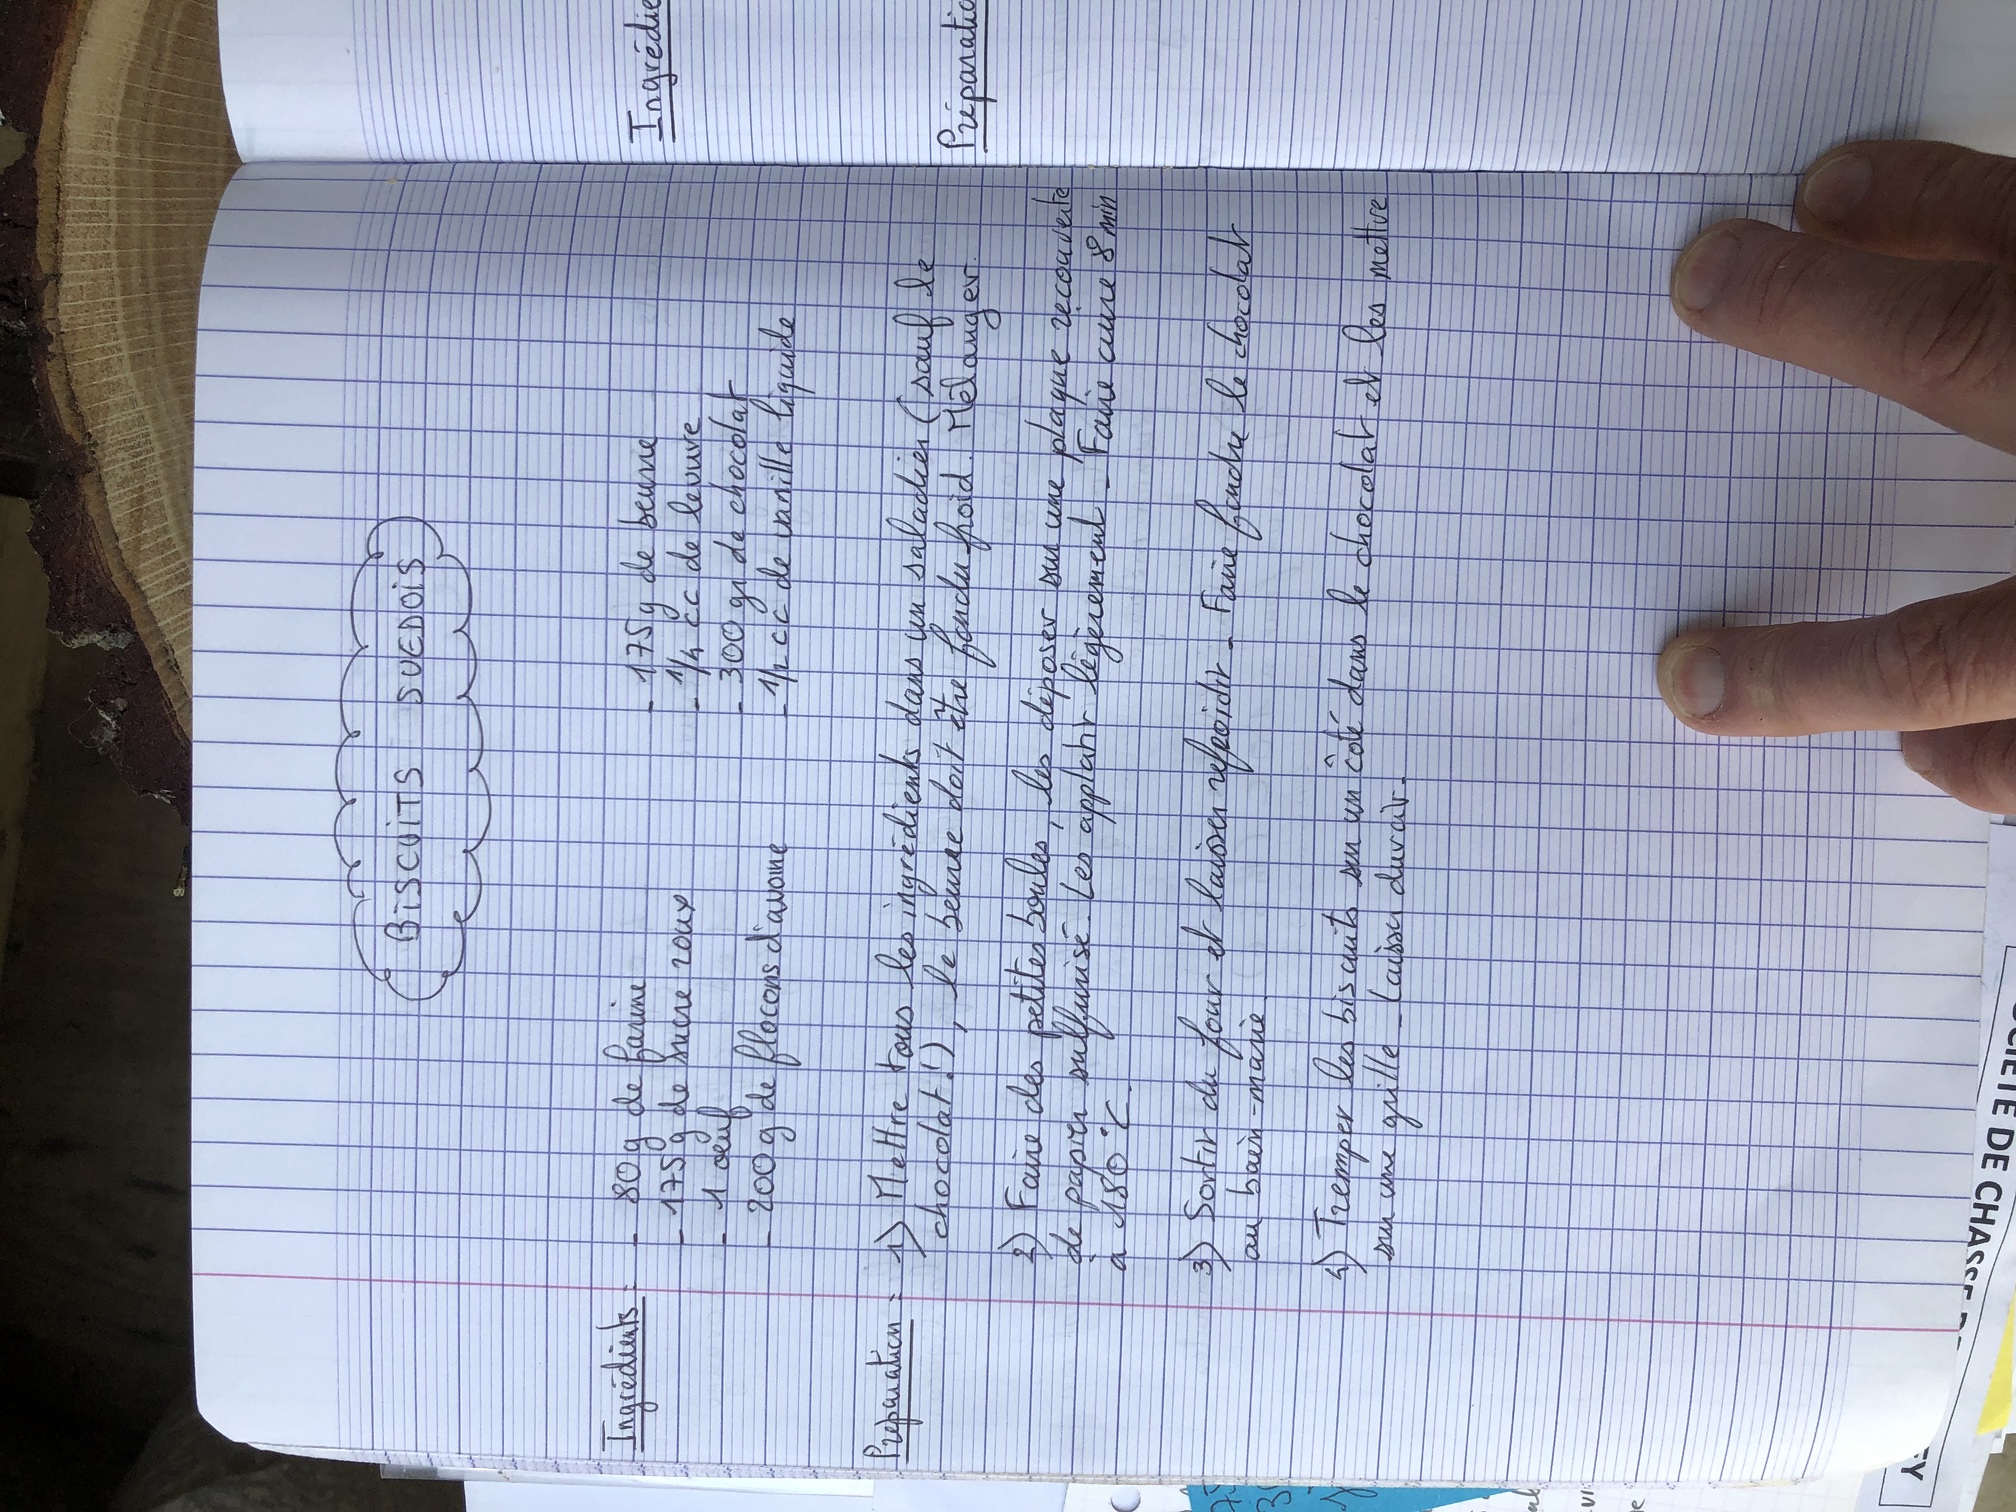 BISCUITS SUEDOIS
Ingrédients :
- 80g de farine
- 175g de sucre roux
- 1 oeuf
- 200g de flocons d'avoine
- 175g de beurre
- 1/4 cc de levure
- 300 gr de chocolat
- 1/2 cc de vanille liquide
Préparation :
1) Mettre tous les ingrédients dans un saladier (sauf le
chocolat!), le beurre doit être fondu froid. Mélanger.
2) Faire des petites boules, les déposer sur une plaque recouverte
de papier sulfurisé. Les applatir légèrement - Faire cuire 8 min
a 180°C.
3) Sortir du four et laisser refroidir - Faire fondre le chocolat
au bain-marie
4) Tremper les biscuits sur un côté dans le chocolat et les mettre
sur une grille - laisser durcir.
Ingrédie
Préparatio
OCIETE DE CHASSE
EY